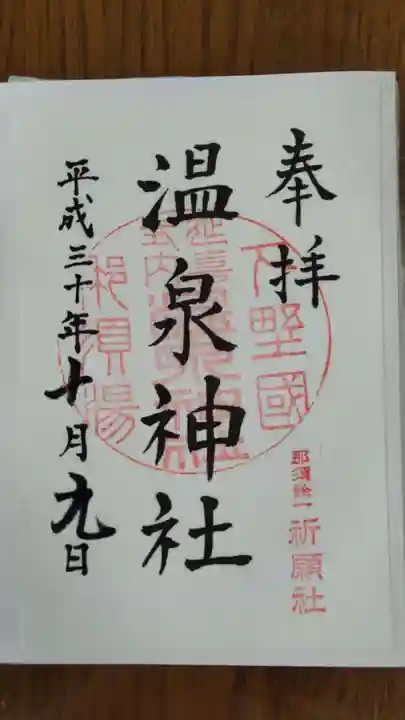 奉拝
下野國
那須餘一
祈願社
温泉神社
延喜式内
那須湯
平成三十年十月九日